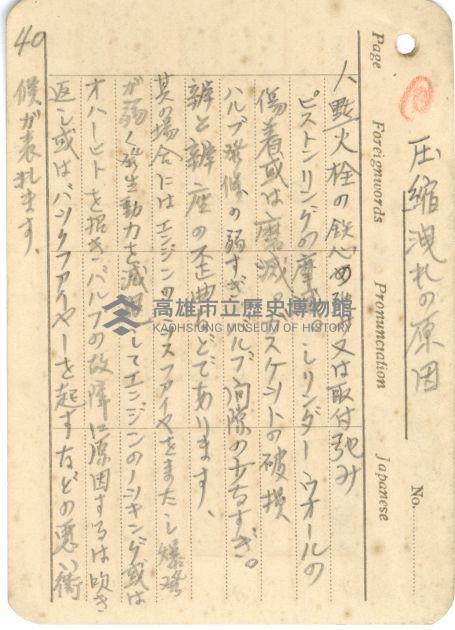 圧縮洩れの原因
No.
Page Foreignwords Pronunciation Japanese
八點火栓の鉄心の弛み又は取付弛み
ピストンリングの摩 シリンダーウオールの
傷着或は磨滅 ガスケットの破損
バルブ発條の弱すぎ バルブ間隙の少なすぎ。
辨と辨座の歪曲などであります、
其の場合にはエンジンのミスファイヤをまたし爆発
が弱く発生動力を減 してエンジンのノッキング或は
オバーヒートを招きバルブの故障に原因するは吹き
返し或はバックファイヤーを起すなどの悪い
候が表れます、
40
高雄市立歷史博物館
KAOHSIUNG MUSEUM OF HISTORY